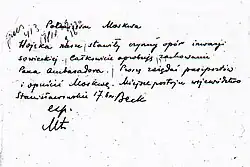 Poladjem Moskwa
Wojska nasze stawiły czynny opór inwazji
sowieckiej. Całkowicie aprobuję zachowanie
Pana Ambasadora. Proszę zażądać paszportów
i opuścić Moskwę. Miejsce postoju województwo
Stanisławowskie 17.IX. Beck